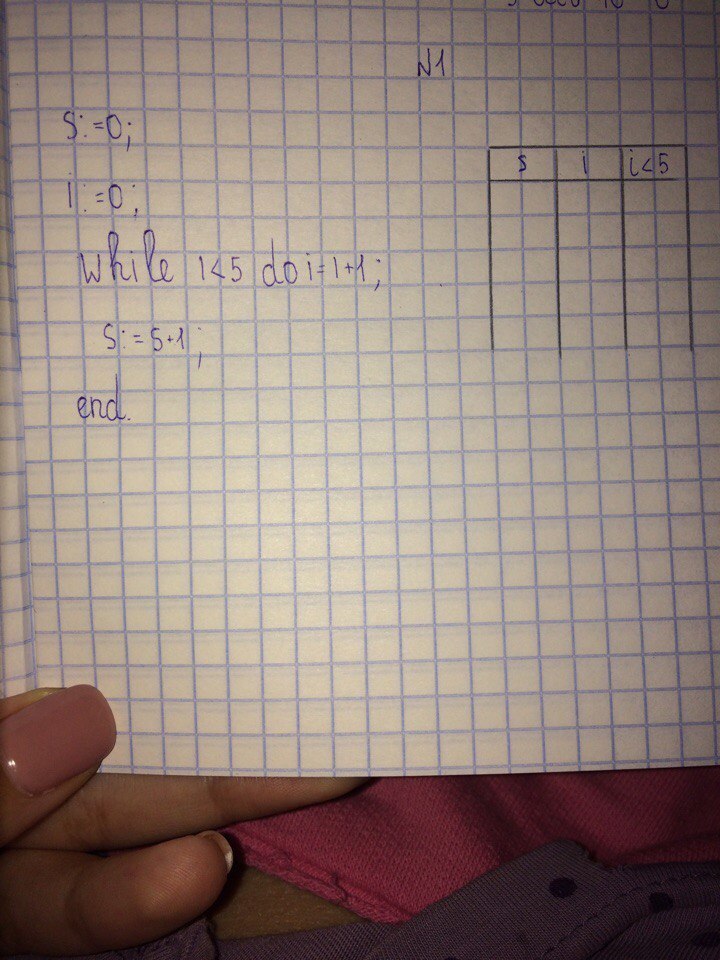 N1
S:=0;
i:=0;
while i<5 do i=i+1;
S:=5+1;
end.
s i i<5